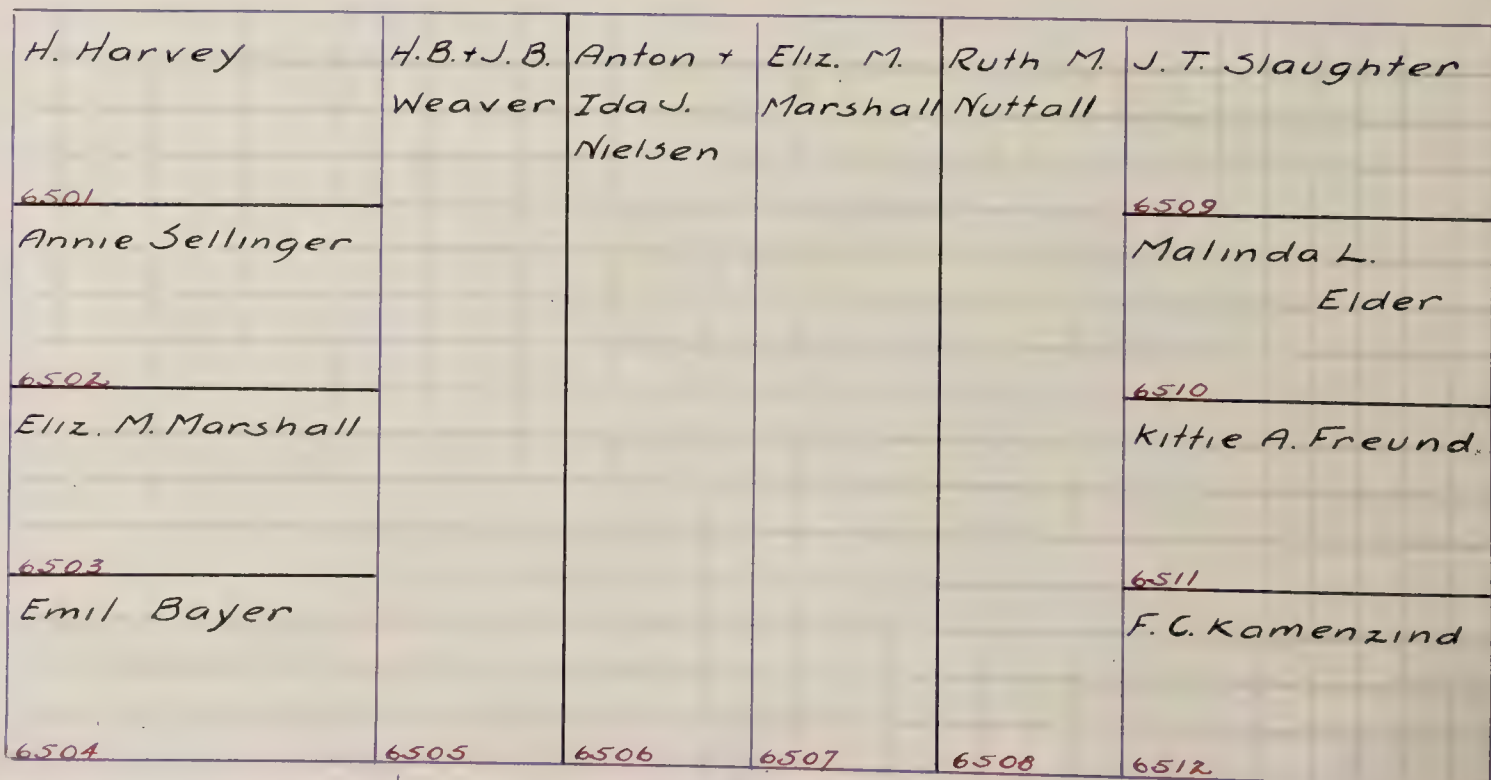 H. Harvey
6501
Annie Sellinger
6502
Eliz. M. Marshall
6503
Emil Bayer
6504
H.B. + J.B.
Weaver
6505
Anton +
Ida J.
Nielsen
6506
Eliz. M.
Marshall
6507
Ruth M.
Nuttall
6508
J. T. Slaughter
6509
Malinda L.
Elder
6510
Kittie A. Freund.
6511
F. C. Kamenzind
6512